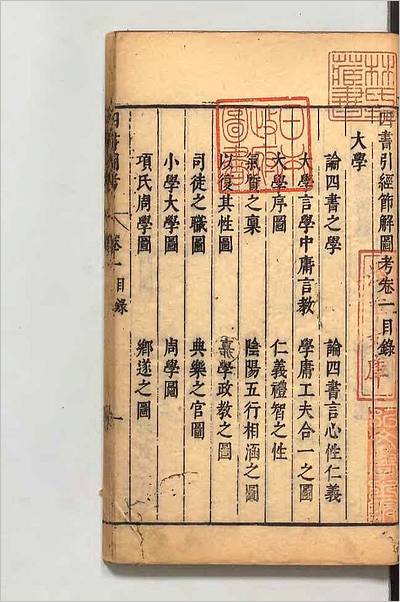 四書引經節解圖考卷一目錄
大學
論四書之學 論四書言心性仁義
大學言學中庸言教 學庸工夫合一之圖
大學序圖 仁義禮智之性
氣質之稟 陰陽五行相涵之圖
以復其性圖 學政教之圖
司徒之職圖 典樂之官圖
小學大學圖 周學圖
項氏周學圖 鄉遂之圖
卷一 目錄
林氏藏書
日本政府圖書